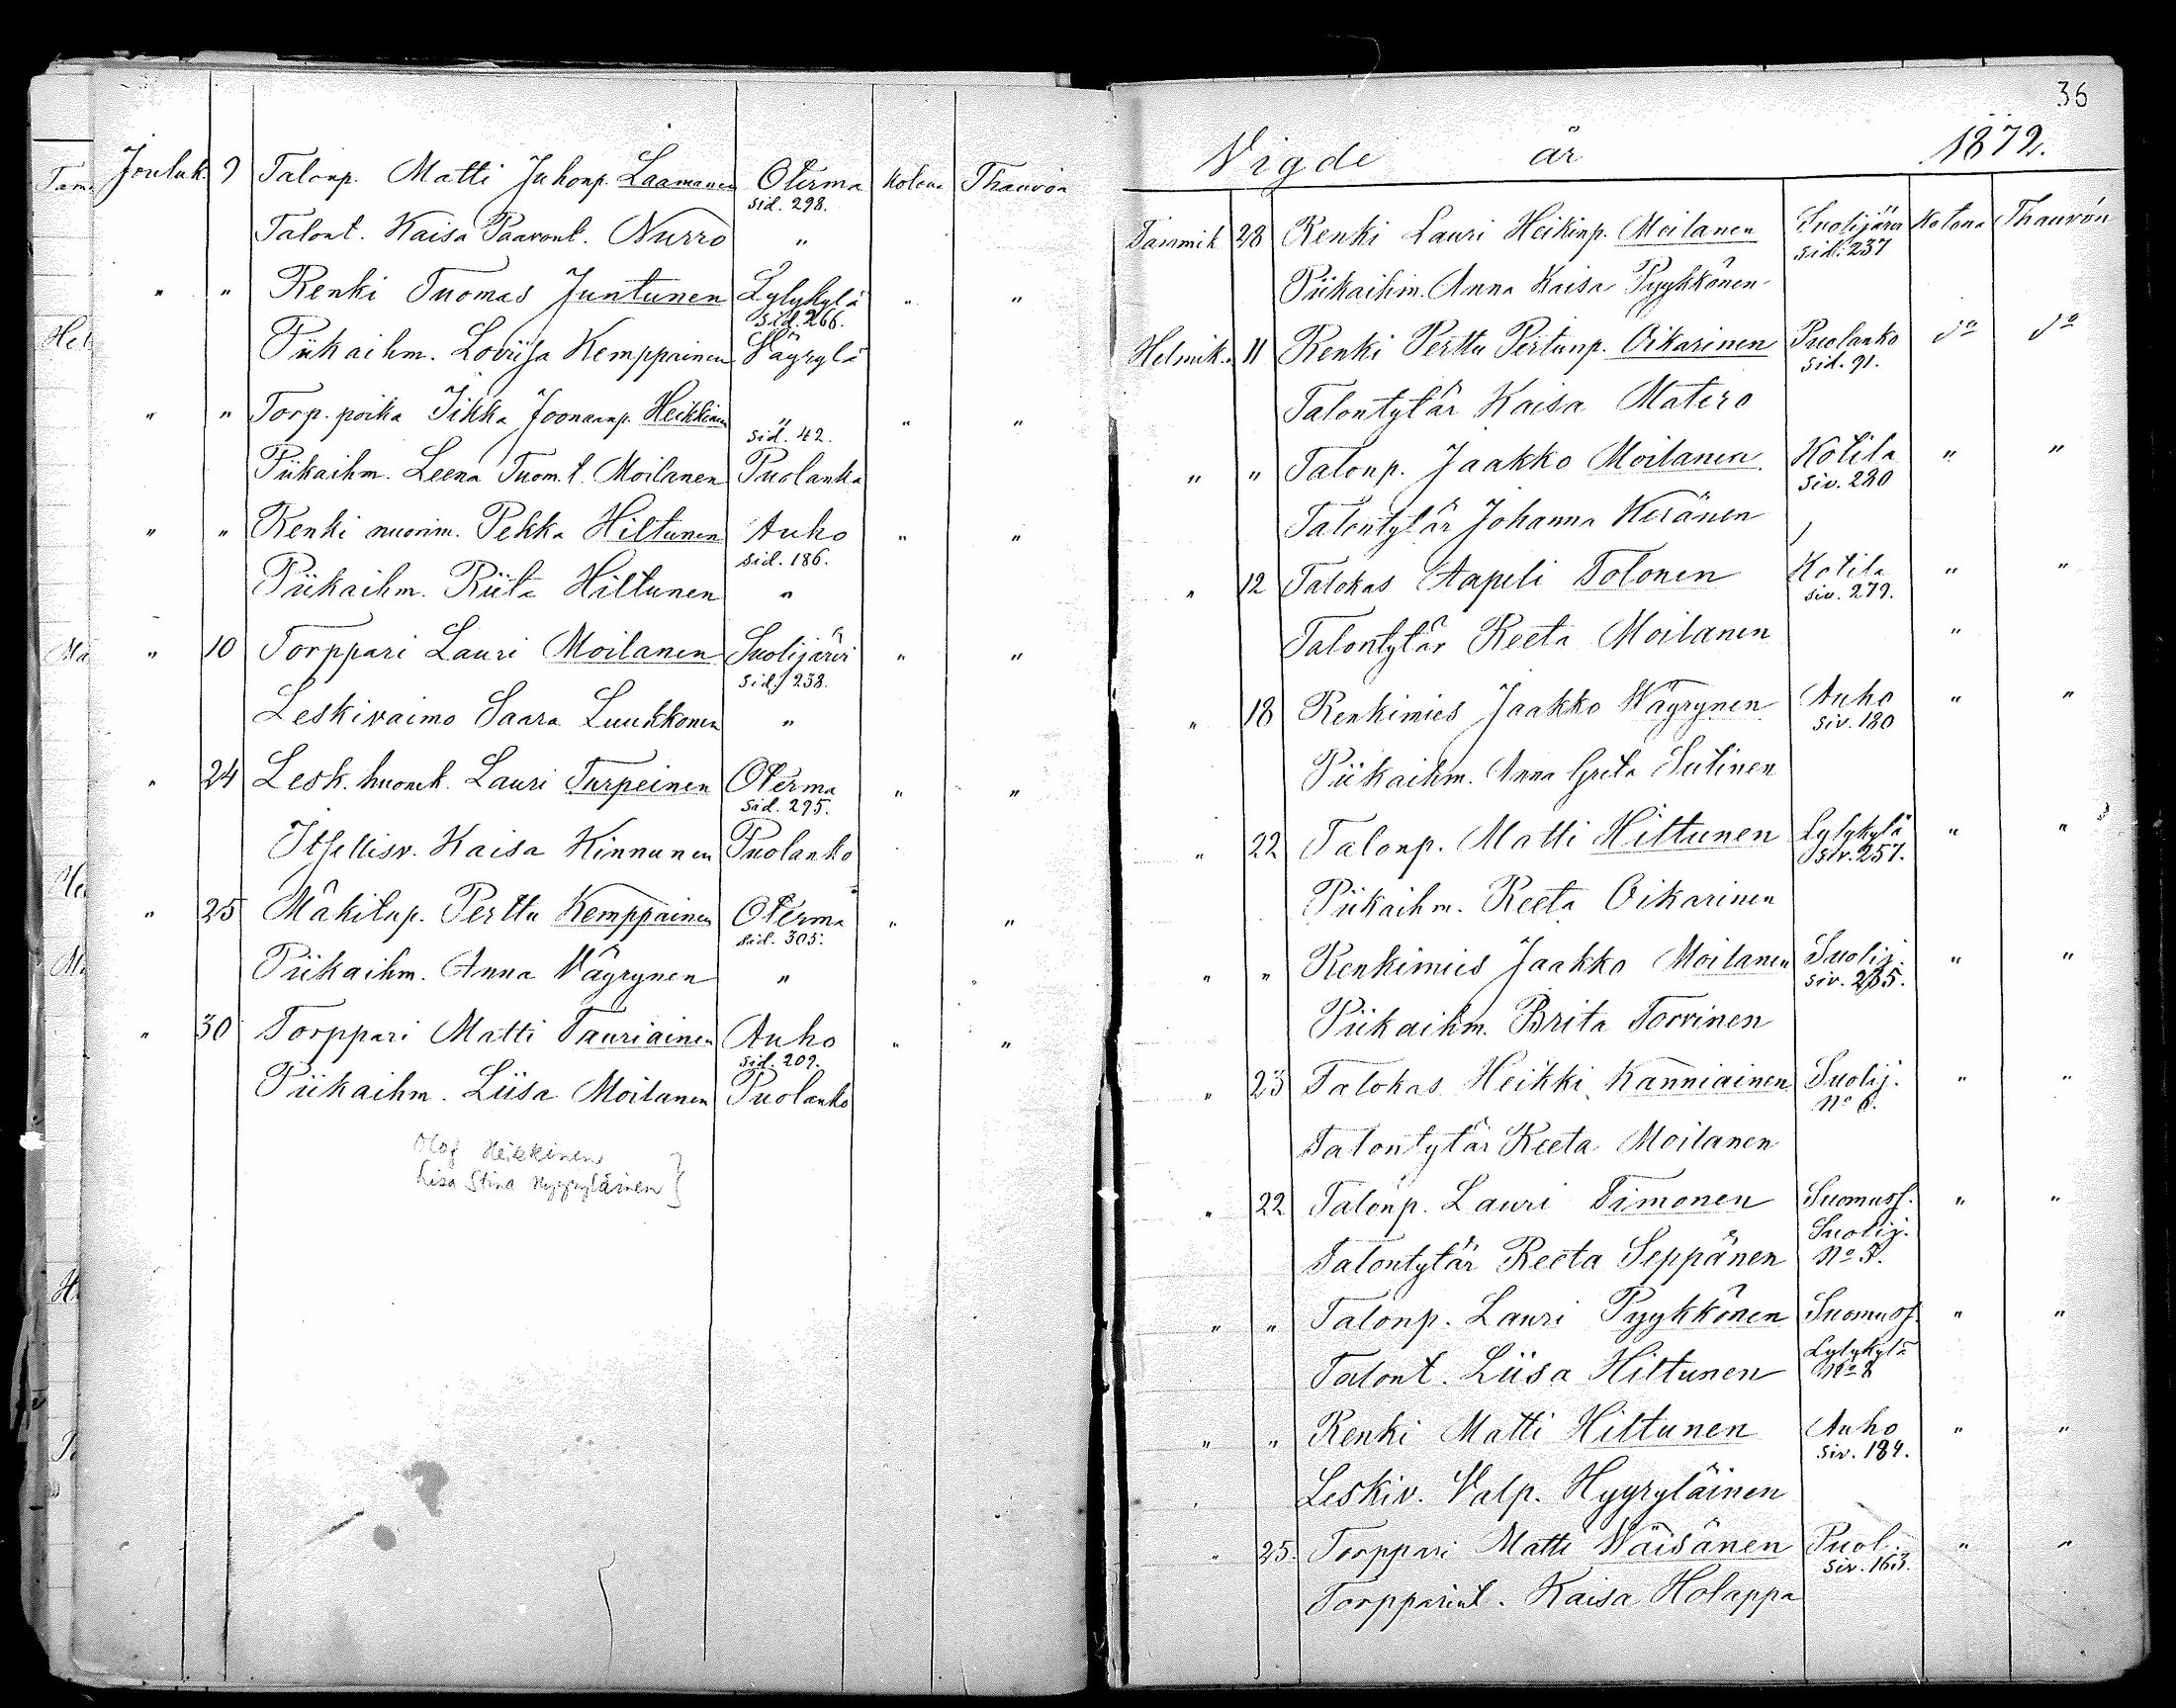 Jouluk. 9 Talonp. Matti Juhonp. Laamanen Oterma kotona Thauvón
sid. 298.
Talont. Kaisa Paavont. Nurro "
" " Renki Tuomas Juntunen Lylykylä " "
sid. 266.
Piikaihm. Loviisa Kemppainen Väyrylä
" " Torp. poika Iikka Joonaanp. Heikkinen " " "
sid. 42.
Piikaihm. Leena Tuom. t. Moilanen Puolanka
" " Renki nuorim. Pekka Hiltunen Auho " "
sid. 186.
Piikaihm. Riita Hiltunen "
" 10 Torppari Lauri Moilanen Suolijärvi " "
sid. 238.
Leskivaimo Saara Luukkonen "
" 24 Lesk. huonek. Lauri Turpeinen Oterma " "
sid. 295.
Itsellisv. Kaisa Kinnunen Puolanko
" 25 Mäkitup. Perttu Kemppainen Oterma " "
sid. 305.
Piikaihm. Anna Väyrynen "
" 30 Torppari Matti Tauriainen Auho " "
sid. 209.
Piikaihm. Liisa Moilanen Puolanko
Olof Heikkinen
Lisa Stina Hyyryläinen }
36
Vigde år 1872.
Tammik 28 Renki Lauri Heikinp. Moilanen Suolijärvi Kotona Thauvón
sid. 237
Piikaihm. Anna Kaisa Pyykkönen
Helmik. 11 Renki Perttu Pertunp. Oikarinen Puolanko do do
sid. 91.
Talontytär Kaisa Matero
" " Talonp. Jaakko Moilanen Kotila " "
siv. 280
Talontytär Johanna Keränen
" 12 Talokas Aapeli Tolonen Kotila " "
siv. 279.
Talontytär Reeta Moilanen "
" 18 Renkimies Jaakko Wäyrynen Auho " "
siv. 180
Piikaihm. Anna Greta Sutinen
" 22 Talonp. Matti Hiltunen Lylykylä " "
siv. 257.
Piikaihm. Reeta Oikarinen
" " Renkimies Jaakko Moilanen Suolij. " "
siv. 235.
Piikaihm. Brita Torvinen
" 23 Talokas Heikki Kanniainen Suolij. " "
No 6.
Talontytär Reeta Moilanen
" 22 Talonp. Lauri Timonen Suomuss. " "
Suolij.
Talontytär Reeta Seppänen No 5.
" " Talonp. Lauri Pyykkönen Suomuss. " "
Lylykylä
Talont. Liisa Hiltunen No 8
" " Renki Matti Hiltunen Auho " "
siv. 184.
Leskiv. Valp. Hyyryläinen
" 25. Torppari Matti Wäisänen Puol. " "
siv. 163.
Torpparint. Kaisa Holappa